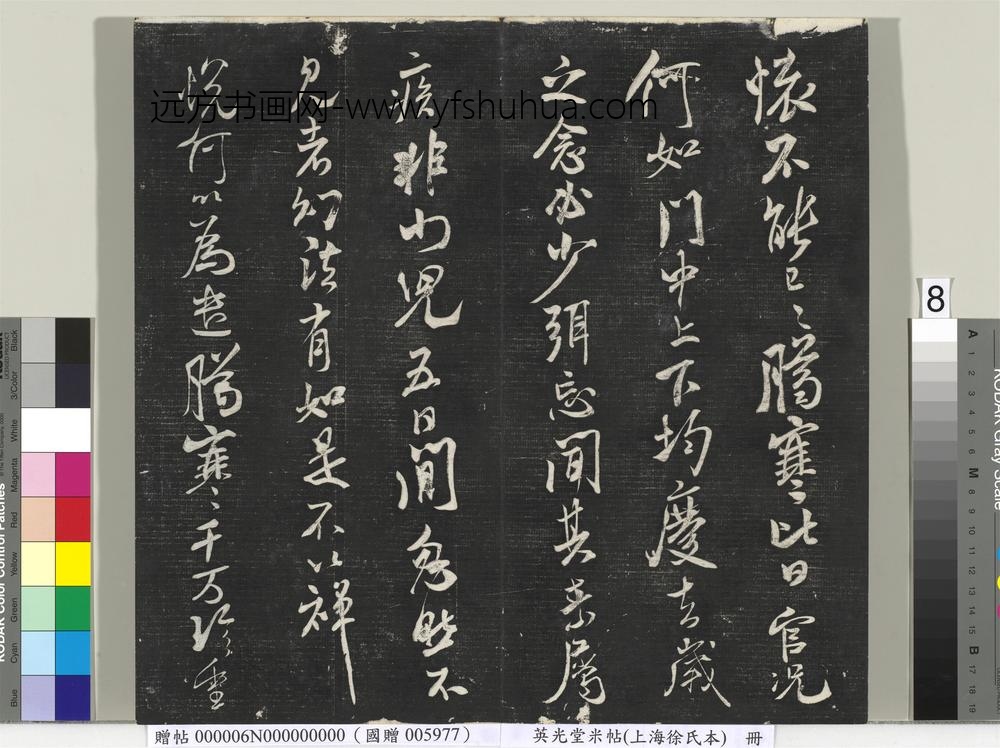 懷不能已〻臈寒〻此日官况
何如門中上下均慶去歲
之念必少弭忘聞其素屬
疾非小児五日間忽然不
見者幻法有如是不以禅
悦何以為遣臈寒〻千万珍重
远方书画网-www.yfshuhua.com
8
KODAK Color Control Patches
Blue Cyan Green Yellow Red Magenta White 3/Color Black
KODAK Gray Scale
A 1 2 3 4 5 6 M 8 9 10 11 12 13 14 15 B 17 18 19
贈帖 000006N000000000（國贈 005977）
英光堂米帖(上海徐氏本) 冊